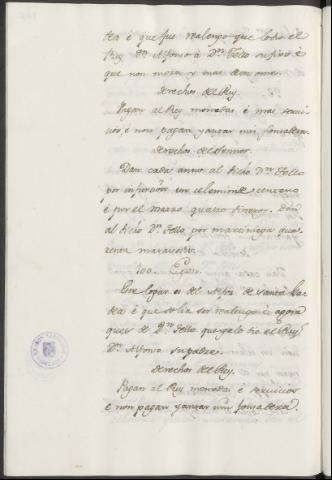 dea è que fue realengo que lo dio el
Rey Dn. Alfonso à Dn. Tello su fijo è
que non mora y mas de un ome.
Derechos del Rey.
Pagan al Rey monedas è mas servi-
cios, è non pagan yantar nin fonsadera.
Derechos del Sennor.
Dan cada anno al dicho Dn. Tello
por infurcion un celemin de centeno
è por el marzo quatro dineros. Dan
al dicho Dn. Tello por marciniega qua-
renta maravedis.
100.
Este logar es del Alfoz de Santa Ga-
dea è que solia ser realengo è agora
que es de Dn. Tello que ge lo dio el Rey
Dn. Alfonso su padre.
Derechos del Rey.
Pagan al Rey monedas è servicios
è non pagan yantar nin fonsadera.